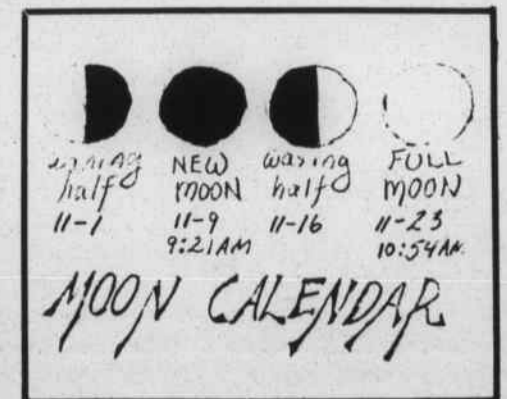 half
11-1
NEW
MOON
11-9
9:21AM
waxing
half
11-16
FULL
MOON
11-23
10:54AM.
MOON CALENDAR